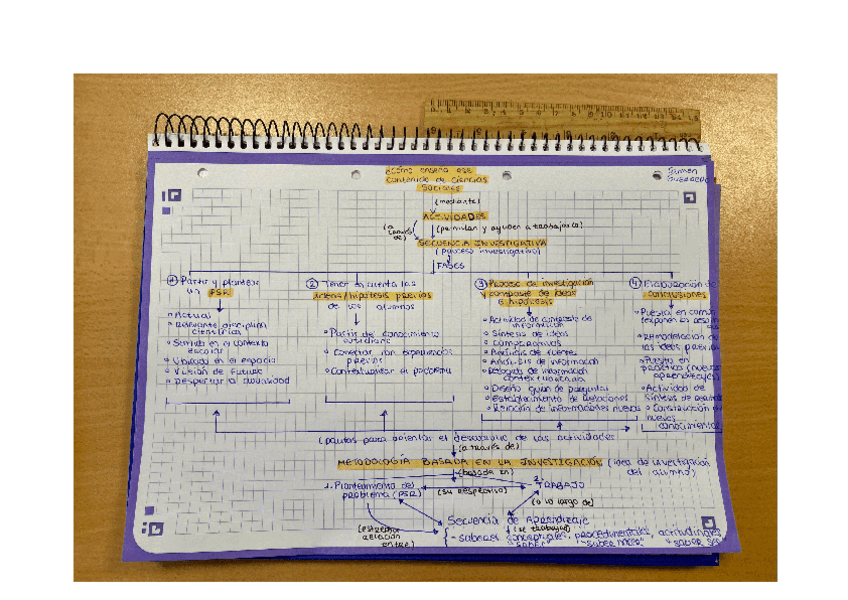 ¿Cómo enseño ese
contenido de Ciencias
Sociales
(mediante)
ACTIVIDADES
(permitan y ayuden a trabajar)
SECUENCIA INVESTIGATIVA
(proceso investigativo)
FASES
1 Partir y plantear
un PSR
Actual
Relevante disciplina
científica
Sentido en el contexto
escolar
Ubicado en el espacio
Visión de futuro
Despertar la curiosidad
2 Tener en cuenta las
ideas/hipótesis previas
de los alumnos
Partir de conocimiento
cotidiano
Conectar con experiencias
previas
Contextualizar el problema
3 Proceso de investigación
y contraste de ideas
e hipótesis
Actividades de contraste de
información
Síntesis de ideas
Comparativas
Análisis de fuentes
Análisis de información
Recogida de información
Diseño guión de preguntas
Establecimiento de relaciones
Relación de informaciones nuevas
4 Elaboración de
conclusiones
Puesta en común
Remodelación de
las ideas previas
Puesta en
práctica (nuevos
aprendizajes)
Actividades de
síntesis de
Construcción de
nuevos
conocimientos
(pautas para orientar el desarrollo de las actividades
(a través de)
METODOLOGÍA BASADA EN LA INVESTIGACIÓN (idea de investigación
del alumno)
(basada en)
1. Planteamiento del
problema (PSR)
(su respectivo)
2. TRABAJO
(a lo largo de)
Secuencia de Aprendizaje
(estrecha
relación
entre)
(se trabajan)
- saberes conceptuales, procedimentales, actitudinales
SABER
SABER HACER
SABER SER